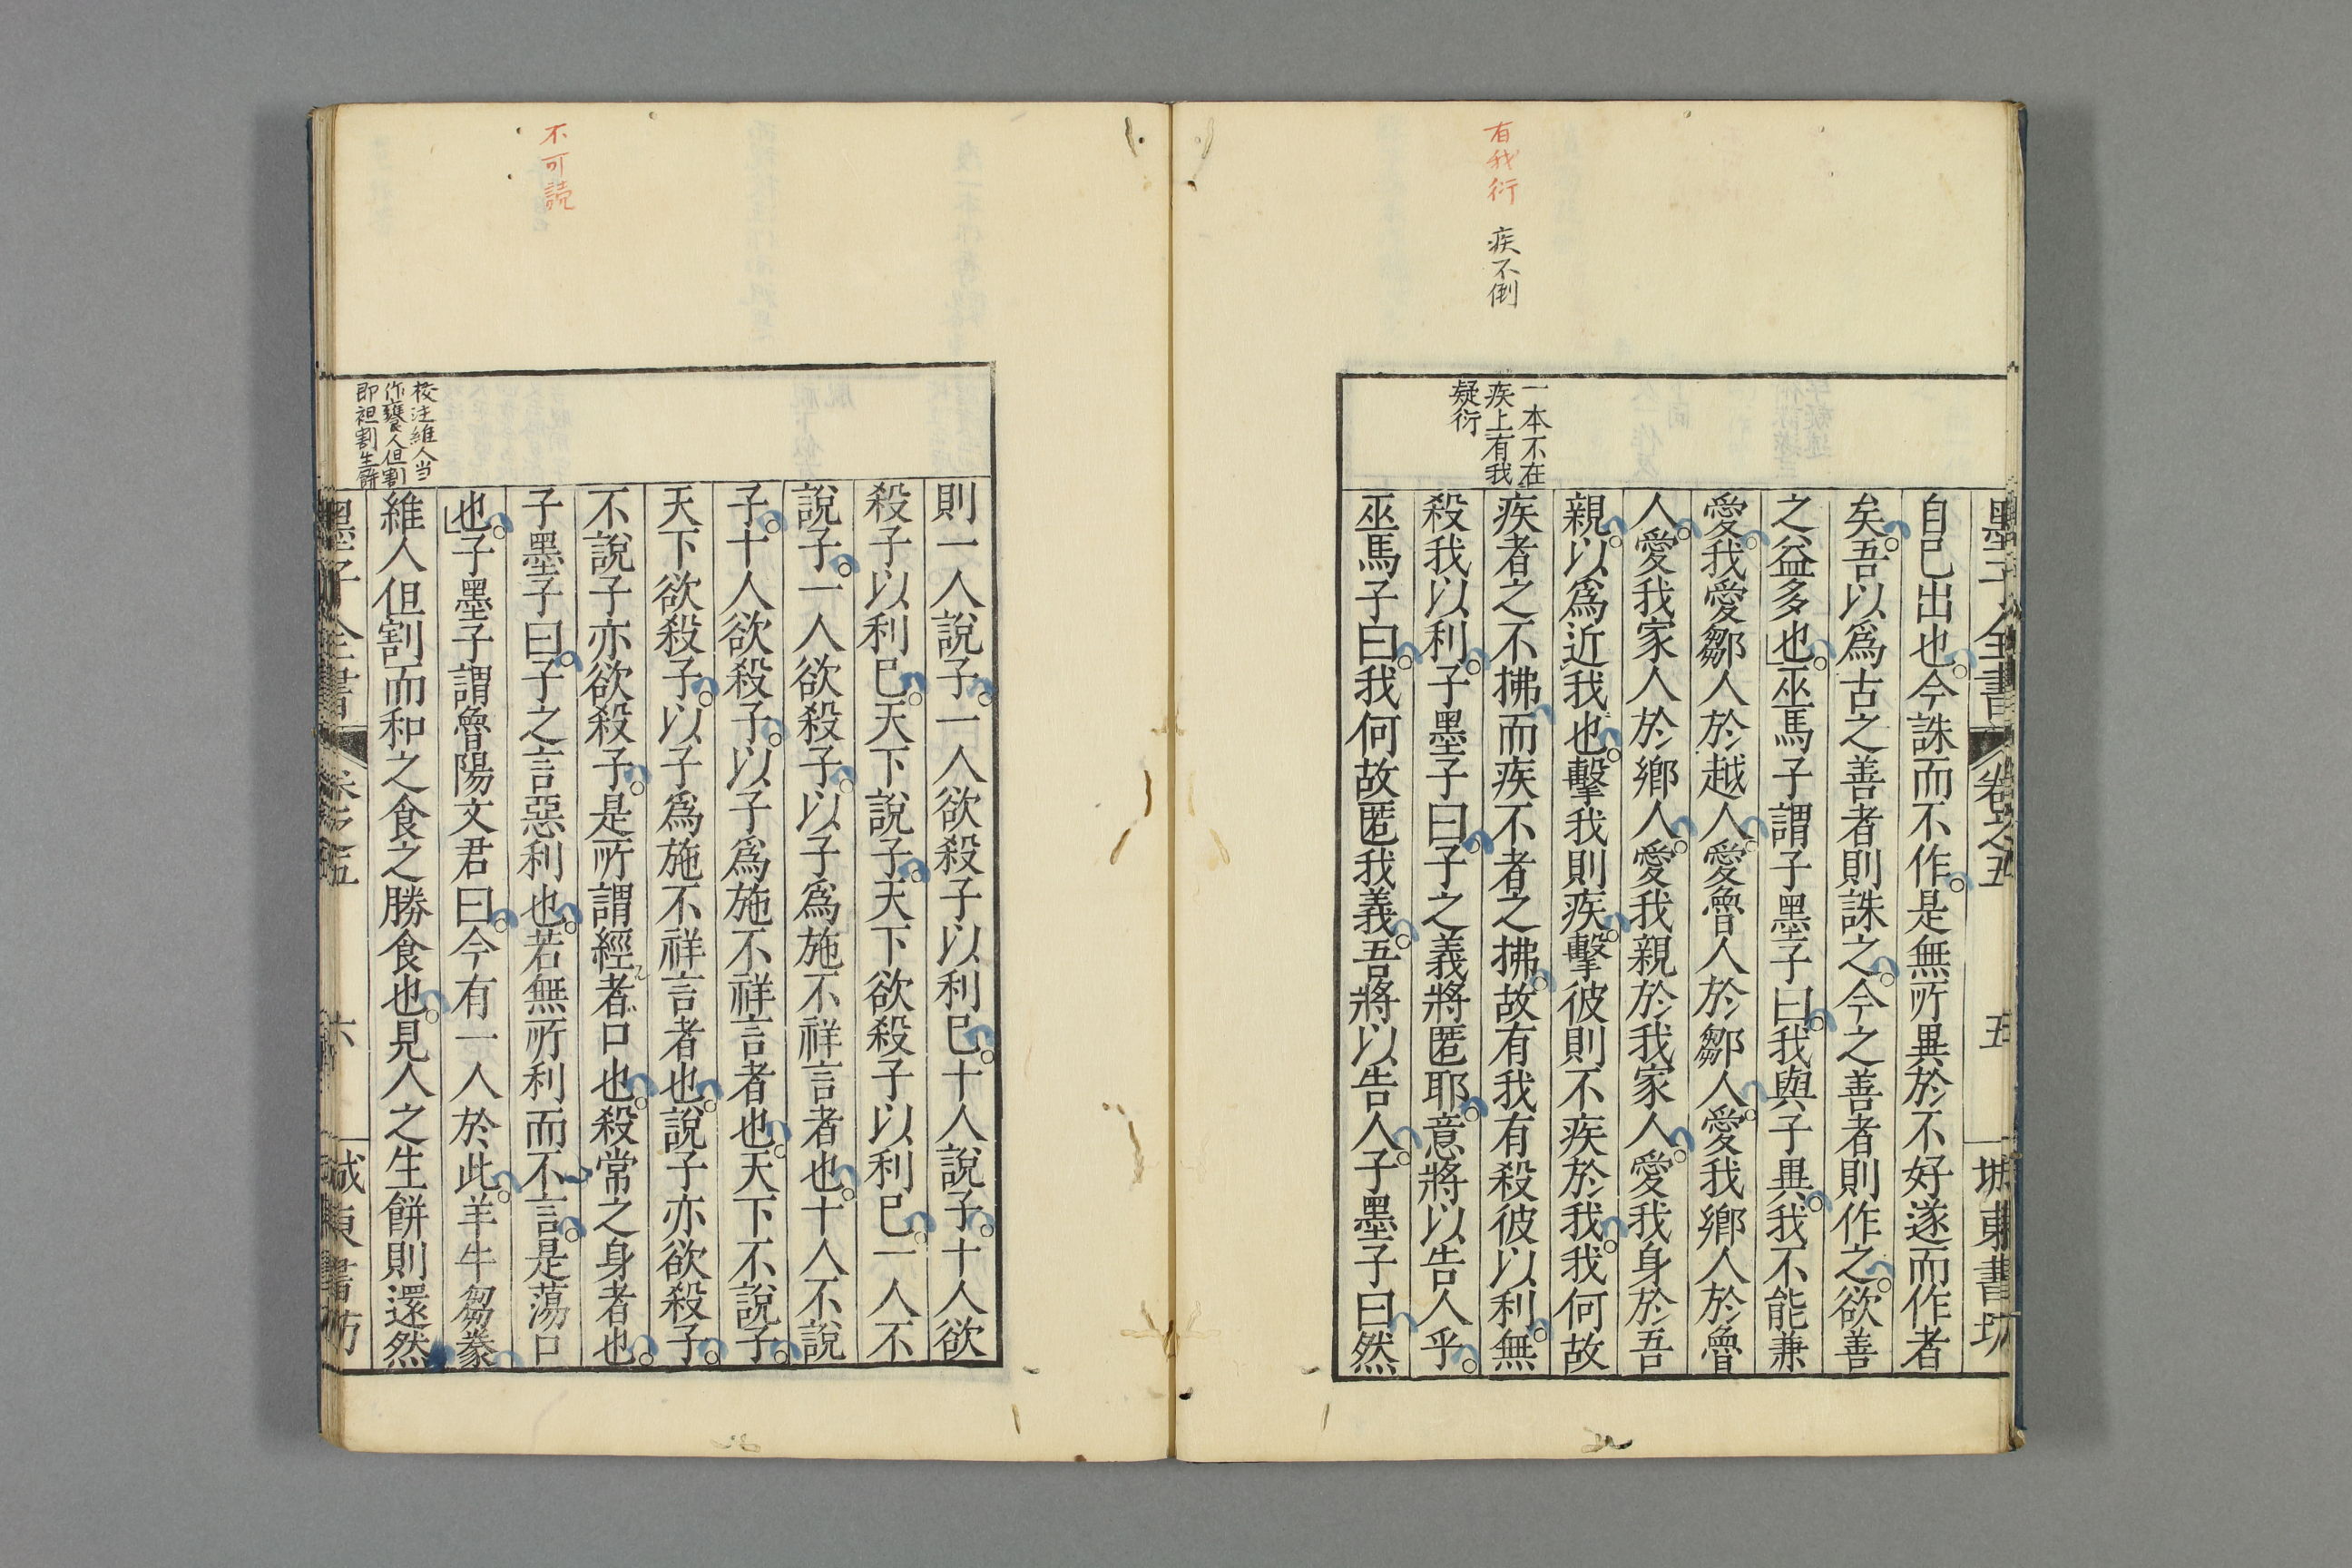 有我衍
疾不倒
一本不在
疾上有我
疑衍
墨子全書 卷之五 五 城東書坊
自己出也。今誅而不作。是無所異於不好遂而作者
矣。吾以爲古之善者則誅之。今之善者則作之。欲善
之益多也。巫馬子謂子墨子曰。我與子異。我不能兼
愛。我愛鄒人於越人。愛魯人於鄒人。愛我鄉人於魯
人。愛我家人於鄉人。愛我親於我家人。愛我身於吾
親。以爲近我也。擊我則疾。擊彼則不疾於我。我何故
疾者之不拂而疾不者之拂。故有我有殺彼以利。無
殺我以利。子墨子曰。子之義將匿耶。意將以告人乎。
巫馬子曰。我何故匿我義。吾將以告人。子墨子曰。然
不可読
則一人說子。一人欲殺子以利已。十人說子。十人欲
殺子以利已。天下說子。天下欲殺子以利已。一人不
說子。一人欲殺子。以子爲施不祥言者也。十人不說
子。十人欲殺子。以子爲施不祥言者也。天下不說子。
天下欲殺子。以子爲施不祥言者也。說子亦欲殺子。
不說子亦欲殺子。是所謂經者口也。殺常之身者也。
子墨子曰。子之言惡利也。若無所利而不言。是蕩口
也。子墨子謂魯陽文君曰。今有一人於此。羊牛芻豢
校注維人当
作饔人但割
即袒割生
維人但割而和之食之勝食也。見人之生餅則還然
墨子全書 卷之五 六 城東書坊